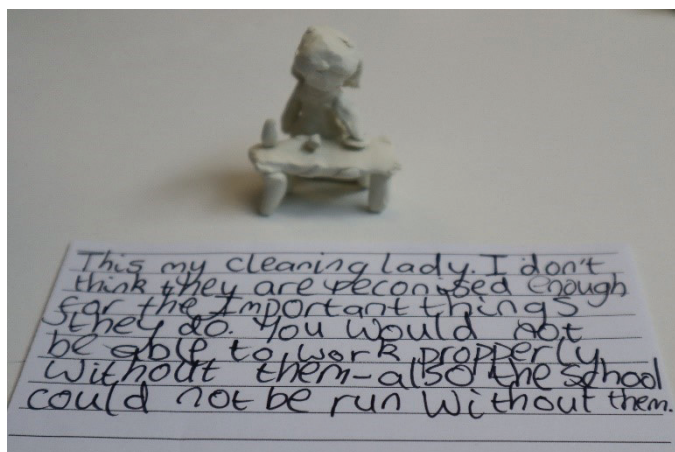 This my cleaning lady. I don't
think they are reconised enough
for the Important things
they do. You would not
be able to work propperly
without them-also the school
could not be run without them.